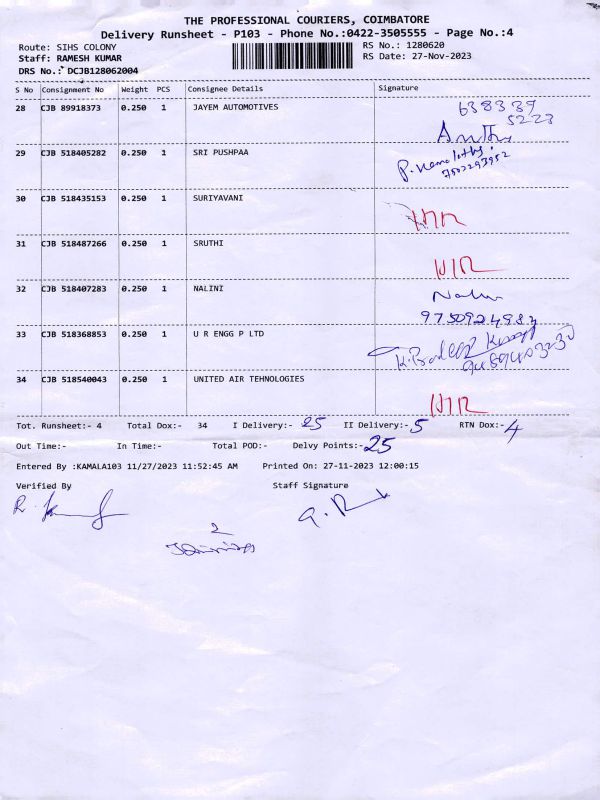 THE PROFESSIONAL COURIERS, COIMBATORE
Delivery Runsheet - P103 - Phone No.:0422-3505555 - Page No.:4
Route: SIHS COLONY RS No.: 1280620
Staff: RAMESH KUMAR RS Date: 27-Nov-2023
DRS No.: DCJB128062004
S No Consignment No Weight PCS Consignee Details Signature
28 CJB 89918373 0.250 1 JAYEM AUTOMOTIVES 638339
5223
29 CJB 518405282 0.250 1 SRI PUSHPAA
7502293952
30 CJB 518435153 0.250 1 SURIYAVANI
31 CJB 518487266 0.250 1 SRUTHI
32 CJB 518407283 0.250 1 NALINI
33 CJB 518368853 0.250 1 U R ENGG P LTD
34 CJB 518540043 0.250 1 UNITED AIR TEHNOLOGIES
Tot. Runsheet:- 4 Total Dox:- 34 I Delivery:- 25 II Delivery:- 5 RTN Dox:- 4
Out Time:- In Time:- Total POD:- Delvy Points:- 25
Entered By :KAMALA103 11/27/2023 11:52:45 AM Printed On: 27-11-2023 12:00:15
Verified By Staff Signature